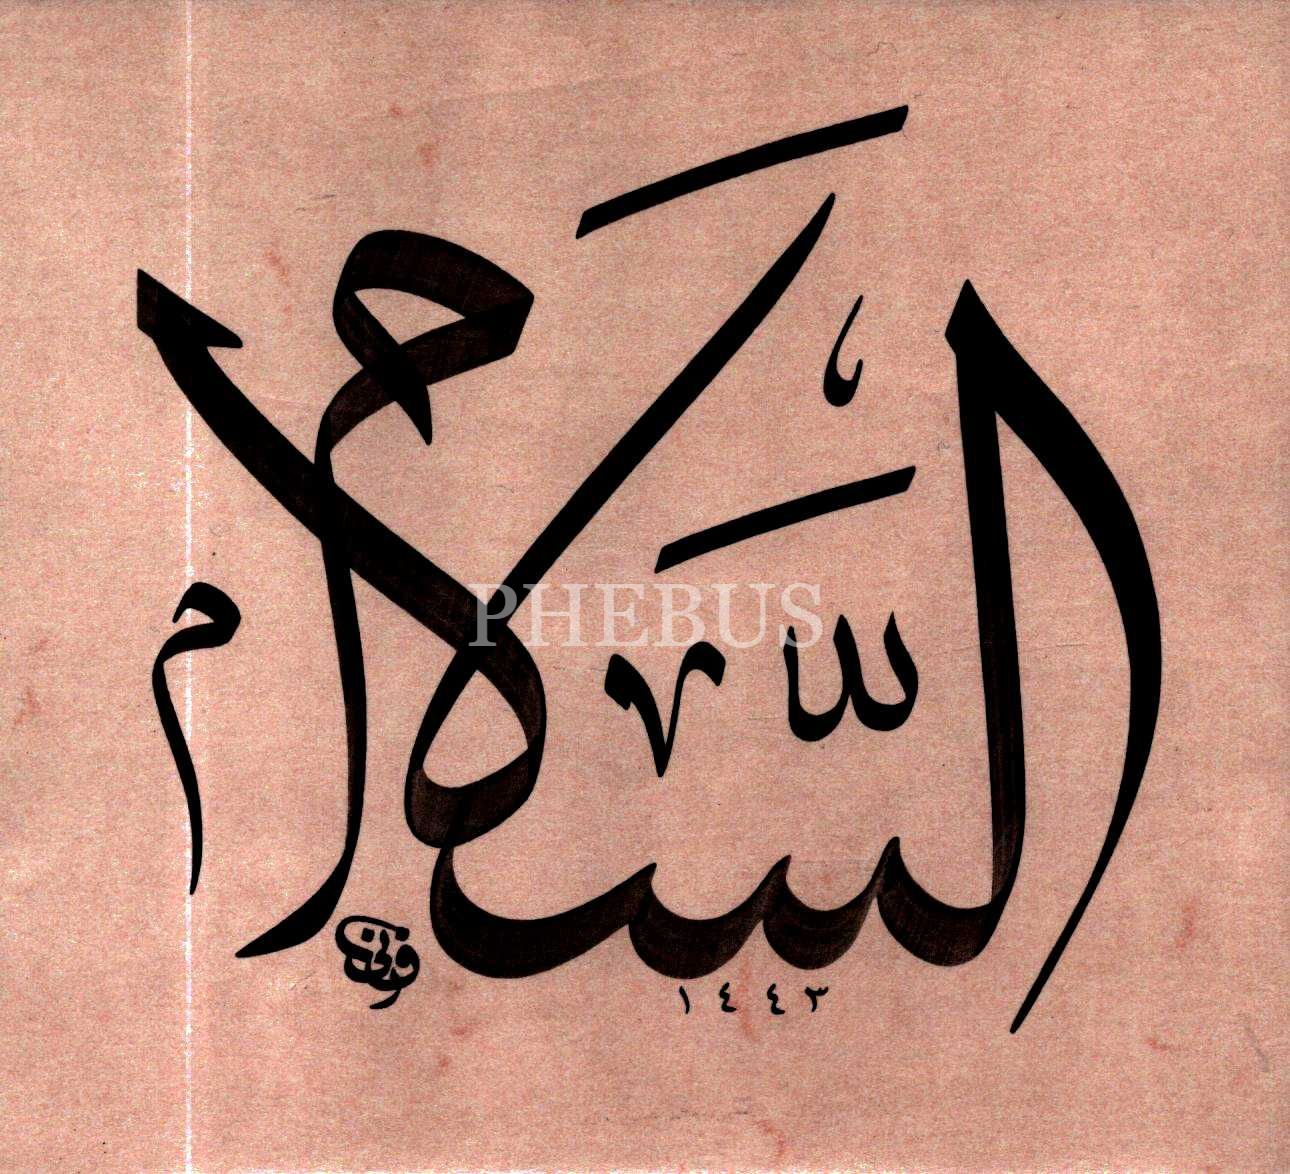 السَّلَام
PHEBUS
١٤٤٣